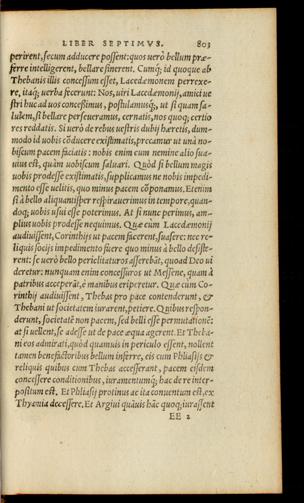 LIBER SEPTIMVS. 803
perirent, secum adducere possent: quos uerò bellum præ-
ferre intelligerent, bellare sinerent. Cumq; id quoque ab
Thebanis illis concessum esset, Lacedæmonem perrexe-
re, itaq; uerba fecerunt: Nos, uiri Lacedæmonij, amici ue
stri huc ad uos concessimus, postulamusq;, ut si quam sa-
lutem, si bellare perseueramus, cernatis, nos quoq; certio
res reddatis. Si uerò de rebus uestris dubij hæretis, dum-
modo id uobis cõducere existimatis, precamur ut unà no-
biscum pacem faciatis: nobis enim cum nemine alio sua-
uius est, quàm uobiscum saluari. Quòd si bellum magis
uobis prodesse existimatis, supplicamus ne nobis impedi-
mento esse uelitis, quo minus pacem cõponamus. Etenim
si à bello aliquantisper respirauerimus in tempore, quan-
doq; uobis usui esse poterimus. At si nunc perimus, am-
plius uobis prodesse nequimus. Quæ cum Lacedæmonij
audiuissent, Corinthijs ut pacem facerent, suasere: nec re-
liquis socijs impedimento fuere quo minus à bello desiste-
rent: se uerò bello periclitaturos asserebãt, quoad Deo ui
deretur: nunquam enim concessuros ut Messene, quam à
patribus acceperãt, è manibus eriperetur. Quæ cum Co-
rinthij audiuissent, Thebas pro pace contenderunt, &
Thebani ut societatem iurarent, petiere. Quibus respon-
derunt, societatẽ non pacem, sed belli esse permutationẽ:
at si uellent, se adesse ut de pace æqua agerent. Et Theba-
ni eos admirati, quòd quamuis in periculo essent, nollent
tamen benefactoribus bellum inferre, eis cum Phliasijs &
reliquis quibus cum Thebas accesserant, pacem eisdem
concessere conditionibus, iuramentumq; hac de re inter-
positum est. Et Phliasij protinus ac ita conuentum est, ex
Thyamia decessere. Et Argiui quãuis hãc quoq; iurassent
EE 2